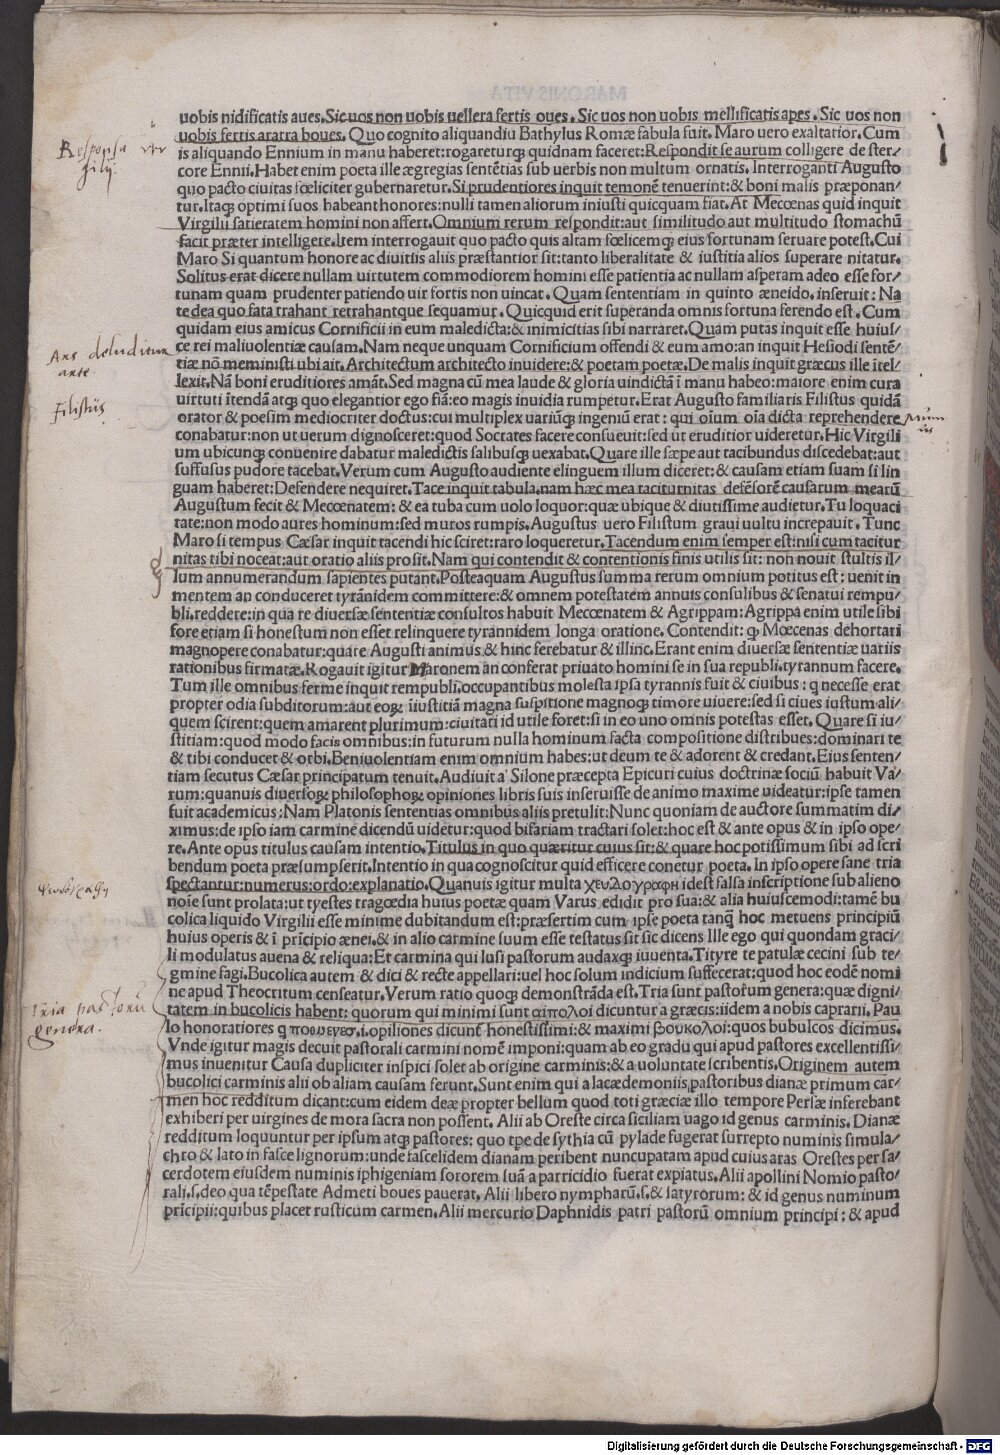 uobis nidificatis aues.Sic uos non uobis uellera fertis oues. Sic uos non uobis mellificatis apes. Sic uos non
uobis fertis aratra boues. Quo cognito aliquandiu Bathylus Romæ fabula fuit. Maro uero exaltatior. Cum
Responsa vir
gilij.
is aliquando Ennium in manu haberet:rogareturq; quidnam faceret:Respondit se aurum colligere de ster/
core Ennii. Habet enim poeta ille ægregias sentẽtias sub uerbis non multum ornatis. Interroganti Augusto
quo pacto ciuitas fœliciter gubernaretur. Si prudentiores inquit temonẽ tenuerint:& boni malis præponan/
tur. Itaq; optimi suos habeant honores:nulli tamen aliorum iniusti quicquam fiat. At Mecœnas quid inquit
Virgilii satietatem homini non affert. Omnium rerum respondit:aut similitudo aut multitudo stomachũ
facit præter intelligere. Item interrogauit quo pacto quis altam fœlicemq; eius fortunam seruare potest. Cui
Maro Si quantum honore ac diuitiis aliis præstantior sit:tanto liberalitate & iustitia alios superare nitatur.
Solitus erat dicere nullam uirtutem commodiorem homini esse patientia ac nullam asperam adeo esse for/
tunam quam prudenter patiendo uir fortis non uincat. Quam sententiam in quinto æneido. inseruit: Na
te dea quo fata trahant retrahantque sequamur. Quicquid erit superanda omnis fortuna ferendo est. Cum
quidam eius amicus Cornificii in eum maledicta:& inimicitias sibi narraret. Quam putas inquit esse huius/
ce rei maliuolentiæ causam. Nam neque unquam Cornificium offendi & eum amo:an inquit Hesiodi sentẽ/
Ars deluditur
arte.
tiæ nõ meministi ubi ait. Architectum architecto inuidere:& poetam poetæ. De malis inquit græcus ille ĩtel/
lexit. Nã boni eruditiores amãt. Sed magna cũ mea laude & gloria uindictã ĩ manu habeo:maiore enim cura
Filistus
uirtuti ĩtendã atq; quo elegantior ego fiã:eo magis inuidia rumpetur. Erat Augusto familiaris Filistus quidã
orator & poesim mediocriter doctus:cui multiplex uariũq; ingeniũ erat: qui oĩum oĩa dicta reprehendere
conabatur:non ut uerum dignosceret:quod Socrates facere consueuit:sed ut eruditior uideretur. Hic Virgili
um ubicunq; conuenire dabatur maledictis salibusq; uexabat. Quare ille sæpe aut tacibundus discedebat:aut
suffusus pudore tacebat. Verum cum Augusto audiente elinguem illum diceret:& causam etiam suam si lin
guam haberet:Defendere nequiret. Tace inquit tabula.nam hæc mea taciturnitas defẽsorẽ causarum mearũ
Augustum fecit & Mecœnatem: & ea tuba cum uolo loquor:quæ ubique & diutissime audietur. Tu loquaci
tate:non modo aures hominum:sed muros rumpis. Augustus uero Filistum graui uultu increpauit. Tunc
Maro si tempus Cæsar inquit tacendi hic sciret:raro loqueretur. Tacendum enim semper est:nisi cum tacitur
nitas tibi noceat:aut oratio aliis prosit. Nam qui contendit & contentionis finis utilis sit: non nouit stultis il/
lum annumerandum sapientes putant. Posteaquam Augustus summa rerum omnium potitus est: uenit in
mentem an conduceret tyrãnidem committere:& omnem potestatem annuis consulibus & senatui rempu/
bli. reddere:in qua re diuersæ sententiæ consultos habuit Meccœnatem & Agrippam:Agrippa enim utile sibi
fore etiam si honestum non esset relinquere tyrannidem longa oratione. Contendit: q; Mœcenas dehortari
magnopere conabatur:quare Augusti animus & hinc ferebatur & illinc. Erant enim diuersæ sententiæ uariis
rationibus firmatæ. Rogauit igitur Maronem an conferat priuato homini se in sua republi.tyrannum facere.
Tum ille omnibus ferme inquit rempubli.occupantibus molesta ipsa tyrannis fuit & ciuibus: q necesse erat
propter odia subditorum:aut eoꝝ iiustitiã magna suspitione magnoq; timore uiuere:sed si ciues iustum ali/
quem scirent:quem amarent plurimum:ciuitati id utile foret:si in eo uno omnis potestas esset. Quare si iu/
stitiam:quod modo facis omnibus:in futurum nulla hominum facta compositione distribues:dominari te
& tibi conducet & orbi. Beniuolentiam enim omnium habes:ut deum te & adorent & credant. Eius senten/
tiam secutus Cæsar principatum tenuit. Audiuit a' Silone præcepta Epicuri cuius doctrinæ sociũ habuit Va/
rum:quanuis diuersoꝝ philosophoꝝ opiniones libris suis inseruisse de animo maxime uideatur:ipse tamen
fuit academicus:Nam Platonis sententias omnibus aliis pretulit:Nunc quoniam de auctore summatim di/
ximus:de ipso iam carmine dicendũ uidetur:quod bifariam tractari solet:hoc est & ante opus & in ipso ope/
re. Ante opus titulus causam intentio. Titulus in quo quæritur cuius sit:& quare hoc potissimum sibi ad scri
bendum poeta præsumpserit. Intentio in qua cognoscitur quid efficere conetur poeta. In ipso opere sane tria
spectantur:numerus:ordo:explanatio. Quanuis igitur multa χευλογραφη idest falsa inscriptione sub alieno
noĩe sunt prolata:ut tyestes tragœdia huius poetæ quam Varus edidit pro sua:& alia huiuscemodi:tamẽ bu
colica liquido Virgilii esse minime dubitandum est:præsertim cum ipse poeta tanq̃ hoc metuens principiũ
huius operis & ĩ prĩcipio ænei.& in alio carmine suum esse testatus sit sic dicens Ille ego qui quondam graci/
li modulatus auena & reliqua:Et carmina qui lusi pastorum audaxq; iuuenta. Tityre te patulæ cecini sub te/
gmine fagi. Bucolica autem & dici & recte appellari:uel hoc solum indicium suffecerat:quod hoc eodẽ nomi
ne apud Theocritum censeatur. Verum ratio quoq; demonstrãda est. Tria sunt pastorum genera:quæ digni/
Tria pastorũ
genera.
tatem in bucolicis habent: quorum qui minimi sunt αιπολοι dicuntur a græcis:iidem a nobis caprarii. Pau
lo honoratiores q ποιυενεσ.i.opiliones dicunt̃ honestissimi:& maximi βουκολοι:quos bubulcos dicimus.
Vnde igitur magis decuit pastorali carmini nomẽ imponi:quam ab eo gradu qui apud pastores excellentissi/
mus inuenitur Causa dupliciter inspici solet ab origine carminis:& a uoluntate scribentis. Originem autem
bucolici carminis alii ob aliam causam ferunt. Sunt enim qui a lacædemoniis pastoribus dianæ primum car/
men hoc redditum dicant:cum eidem deæ propter bellum quod toti græciæ illo tempore Persæ inferebant
exhiberi per uirgines de mora sacra non possent. Alii ab Oreste circa siciliam uago id genus carminis. Dianæ
redditum loquuntur per ipsum atq; pastores: quo tpe de sythia cũ pylade fugerat surrepto numinis simula/
chro & lato in fasce lignorum:unde fascelidem dianam peribent nuncupatam apud cuius aras Orestes per sa/
cerdotem eiusdem numinis iphigeniam sororem suã a parricidio fuerat expiatus. Alii apollini Nomio pasto/
rali.s.deo qua tẽpestate Admeti boues pauerat. Alii libero nympharũ.s.& satyrorum: & id genus numinum
prĩcipii:quibus placet rusticum carmen. Alii mercurio Daphnidis patri pastorũ omnium principi: & apud
Digitalisierung gefördert durch die Deutsche Forschungsgemeinschaft - DFG